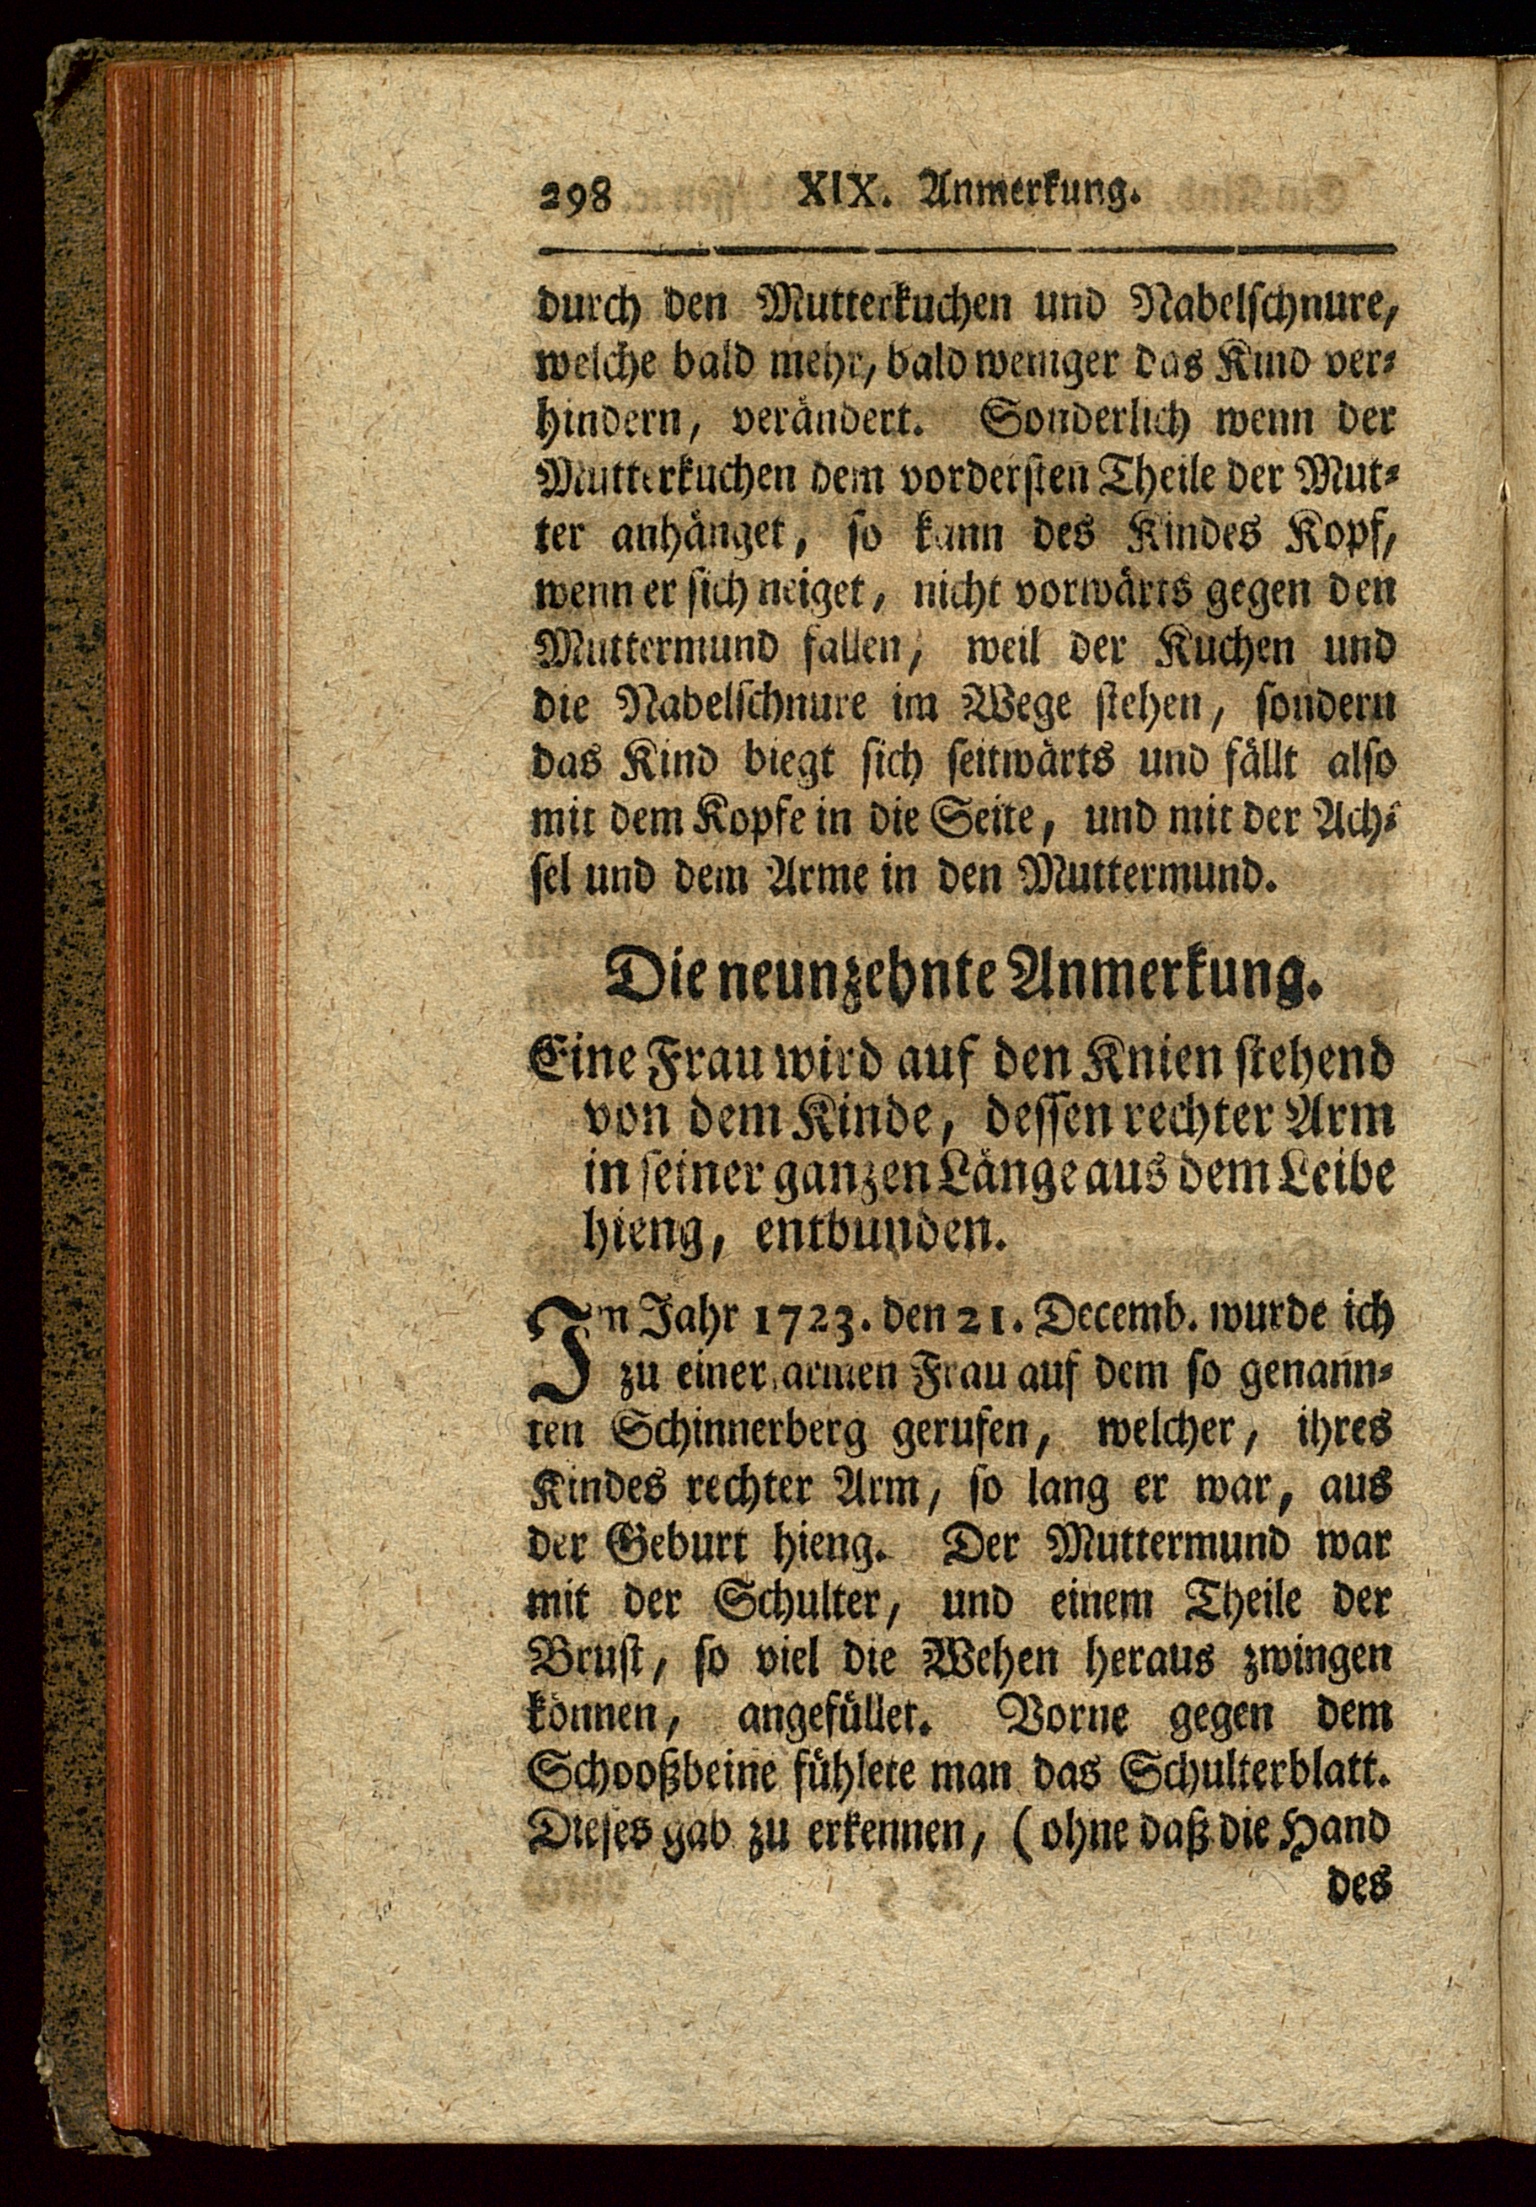 298 XIX. Anmerkung.
durch den Mutterkuchen und Nabelschnure,
welche bald mehr, bald weniger das Kind ver-
hindern, verändert. Sonderlich wenn der
Mutterkuchen dem vordersten Theile der Mut-
ter anhänget, so kann des Kindes Kopf,
wenn er sich neiget, nicht vorwärts gegen den
Muttermund fallen, weil der Kuchen und
die Nabelschnure im Wege stehen, sondern
das Kind biegt sich seitwärts und fällt also
mit dem Kopfe in die Seite, und mit der Ach-
sel und dem Arme in den Muttermund.
Die neunzehnte Anmerkung.
Eine Frau wird auf den Knien stehend
von dem Kinde, dessen rechter Arm
in seiner ganzen Länge aus dem Leibe
hieng, entbunden.
Im Jahr 1723. den 21. Decemb. wurde ich
zu einer armen Frau auf dem so genann-
ten Schinnerberg gerufen, welcher, ihres
Kindes rechter Arm, so lang er war, aus
der Geburt hieng. Der Muttermund war
mit der Schulter, und einem Theile der
Brust, so viel die Wehen heraus zwingen
können, angefüllet. Vorne gegen dem
Schooßbeine fühlete man das Schulterblatt.
Dieses gab zu erkennen, (ohne daß die Hand
des